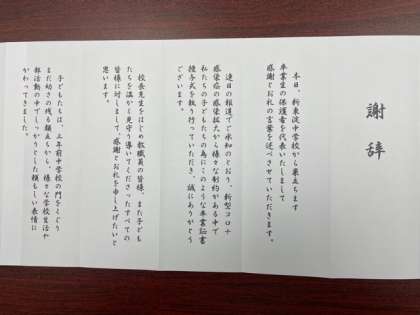 謝辞
本日、新東淀中学校から巣立ちます
卒業生の保護者を代表いたしまして
感謝とお礼の言葉を述べさせていただきます。
連日の報道でご承知のとおり、新型コロナ
感染症の感染拡大から様々な制約がある中で
私たちの子どもたちの為にこのような卒業証書
授与式を執り行っていただき、誠にありがとう
ございます。
校長先生をはじめ教職員の皆様、また子ども
たちを温かく見守り導いてくださったすべての
皆様に対しまして、感謝とお礼を申し上げたいと
思います。
子どもたちは、三年前中学校の門をくぐり
まだ幼さの残る顔立ちから、様々な学校生活や
部活動の中でしっかりとした頼もしい表情に
かわってきました。